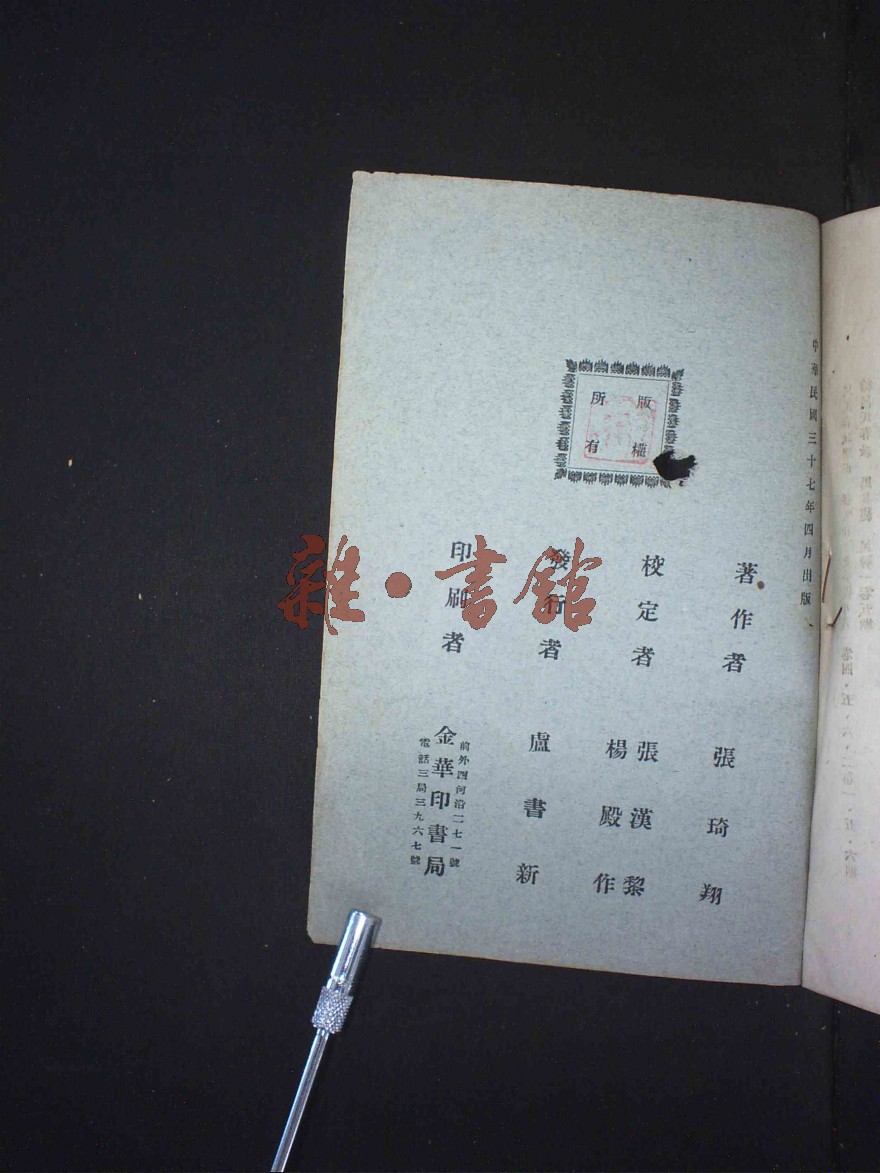 中華民國三十七年四月出版
版權
所有
著作者 張琦翔
校定者 張漢黎
楊殿作
發行者 盧書新
印刷者 金華印書局
前外西河沿二七一號
電話三局三九六七號
雜·書館